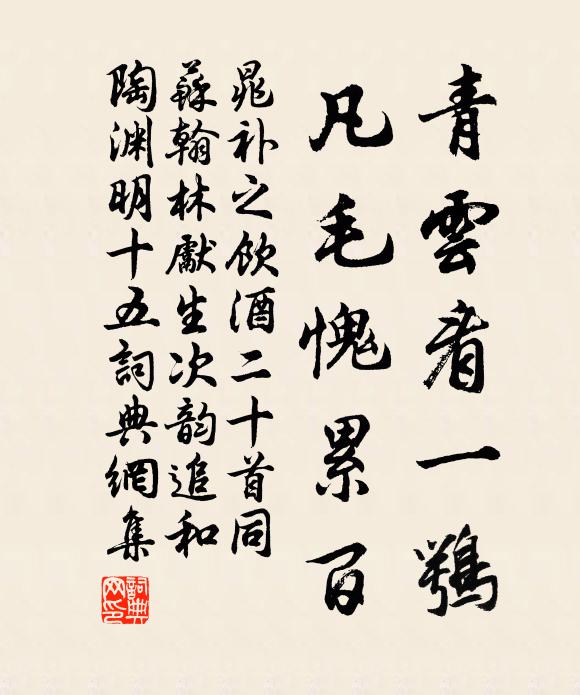 青雲看一鶚
凡毛愧累百
晁补之飲酒二十首同
蘇翰林獻生次韵追和
陶渊明十五詞典網集
詞典网印